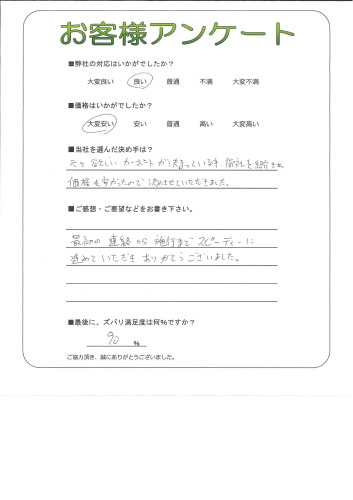 お客様アンケート
■弊社の対応はいかがでしたか？
大変良い 良い 普通 不満 大変不満
■価格はいかがでしたか？
大変安い 安い 普通 高い 大変高い
■当社を選んだ決め手は？
元々欲しいカーポートが決まっている中、御社を紹介され
価格も安かったので決めさせていただきました。
■ご感想・ご要望などをお書き下さい。
最初の連絡から施行までスピーディーに
進めていただきありがとうございました。
■最後に、ズバリ満足度は何％ですか？
90 ％
ご協力頂き、誠にありがとうございました。